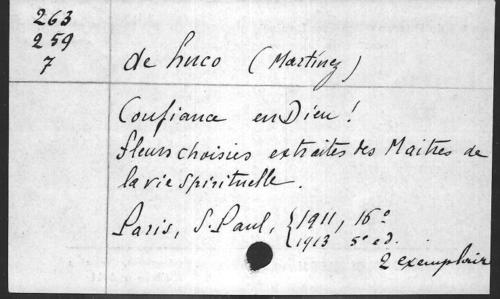 263
259
7
de Huco (Martínez)
Confiance en Dieu !
fleurs choisies extraites des Maitres de
la vie spirituelle.
Paris, S. Paul, { 1911, 16º
1913 5ª ed.
2 exemplair